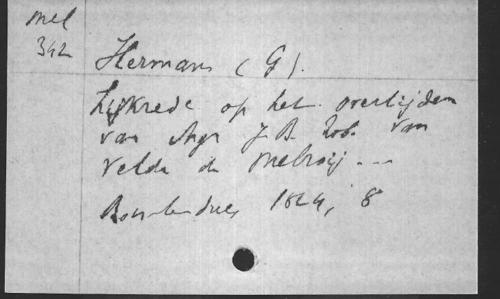 Mel
342
Hermans (G).
Lijkrede op het overlijden
van Mgr J. B. Rob. van
Velde de Melroij ---
1824, 8